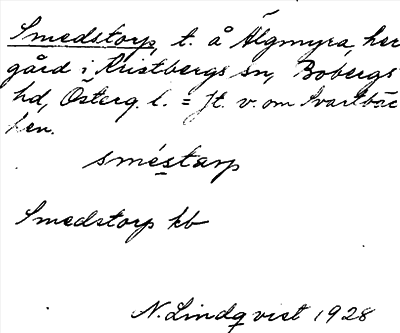 Smedstorp, t. å Älgmyra, her
gård i Kristbergs sn, Bobergs
hd, Österg. l. = st. v. om Svartbäc
ken.
sméstarp
Smedstorp kb
N. Lindqvist 1928